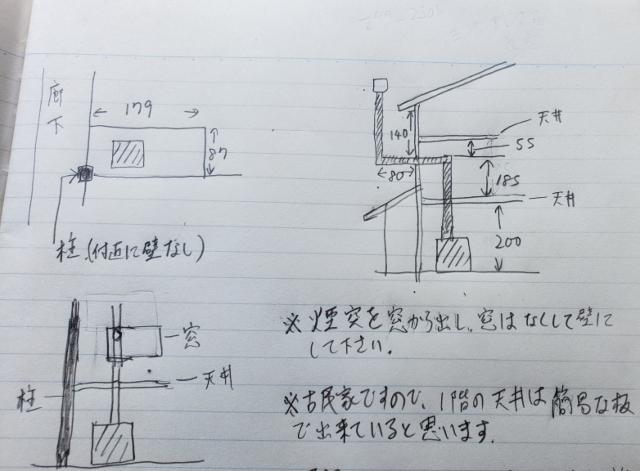 廊下
179
87
柱(付近に壁なし)
天井
140
55
80
185
天井
200
窓
天井
柱
※煙突を窓から出し、窓はなくして壁に
して下さい.
※古民家ですので、1階の天井は簡易な板
で出来ていると思います.